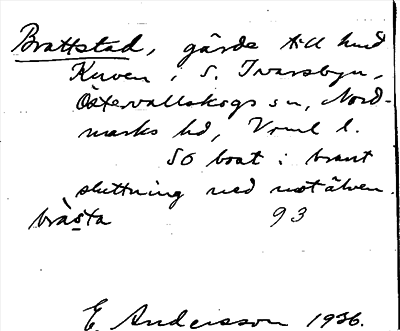 Brattstad, gärde till hmd
Kuven i S. Ivarsbyn,
Östervallskogs sn, Nord-
marks hd, Vrml l.
SO boat i brant
sluttning ned mot älven.
bràsta 93
E. Andersson 1936.